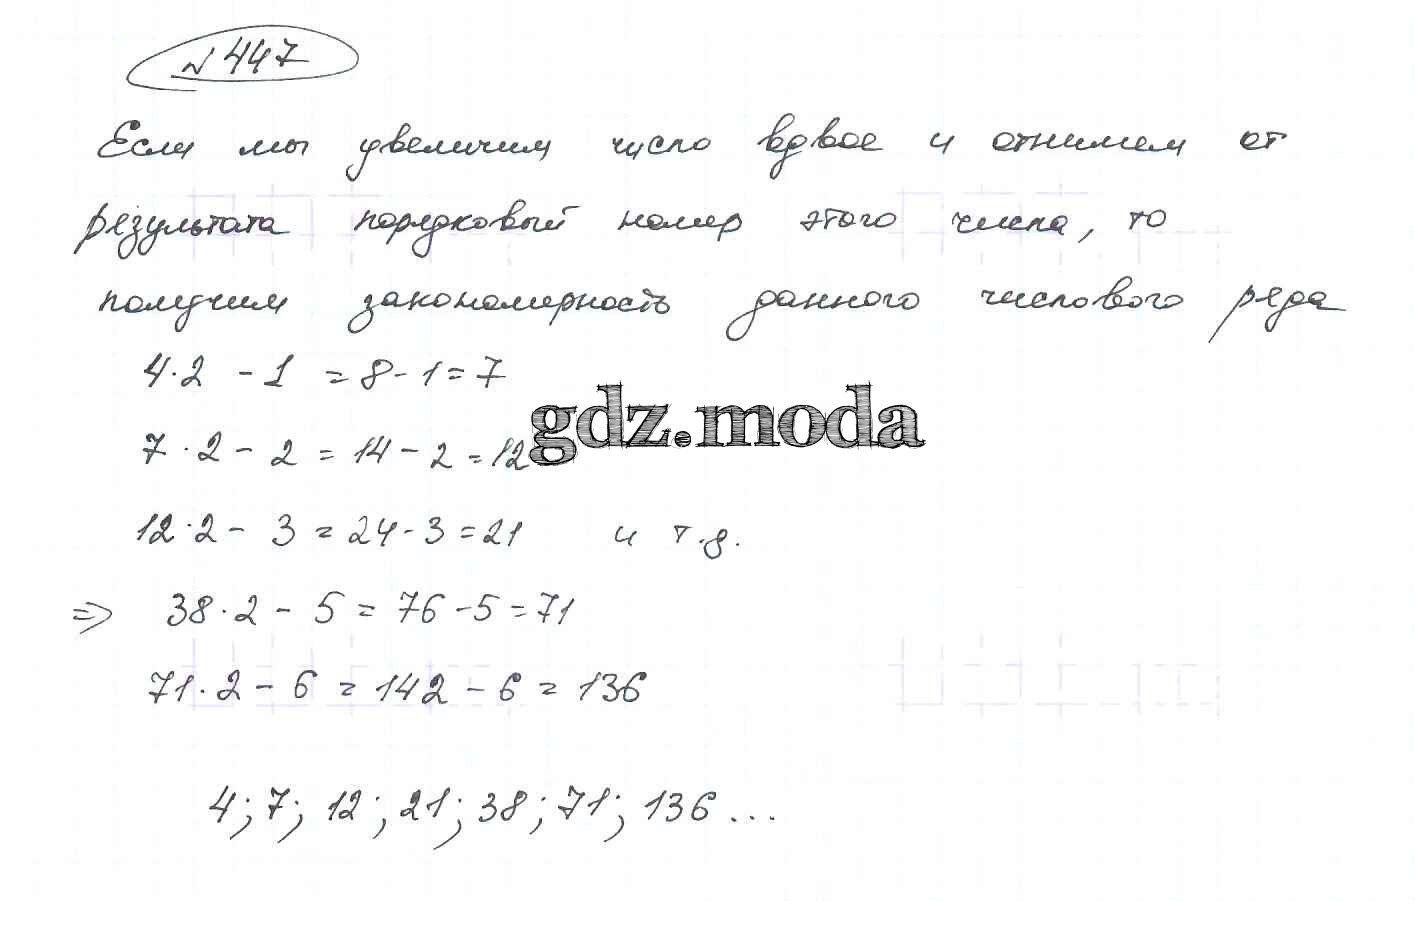 № 447
Если мы увеличим число вдвое и отнимем от
результата порядковый номер этого числа, то
получим закономерность данного числового ряда
4·2 - 1 = 8 - 1 = 7
gdz.moda
7 · 2 - 2 = 14 - 2 = 12
12·2 - 3 = 24 - 3 = 21 и т.д.
=> 38·2 - 5 = 76 - 5 = 71
71·2 - 6 = 142 - 6 = 136
4; 7; 12; 21; 38; 71; 136 ...